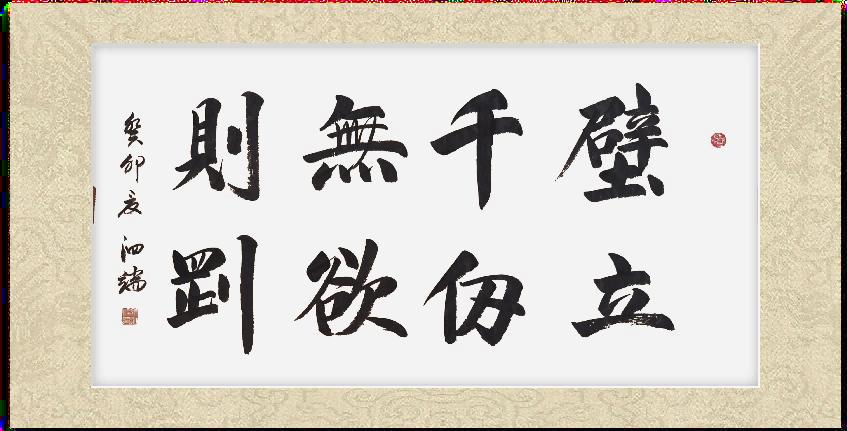 壁立
千仞
無欲
則剛
癸卯夏泗